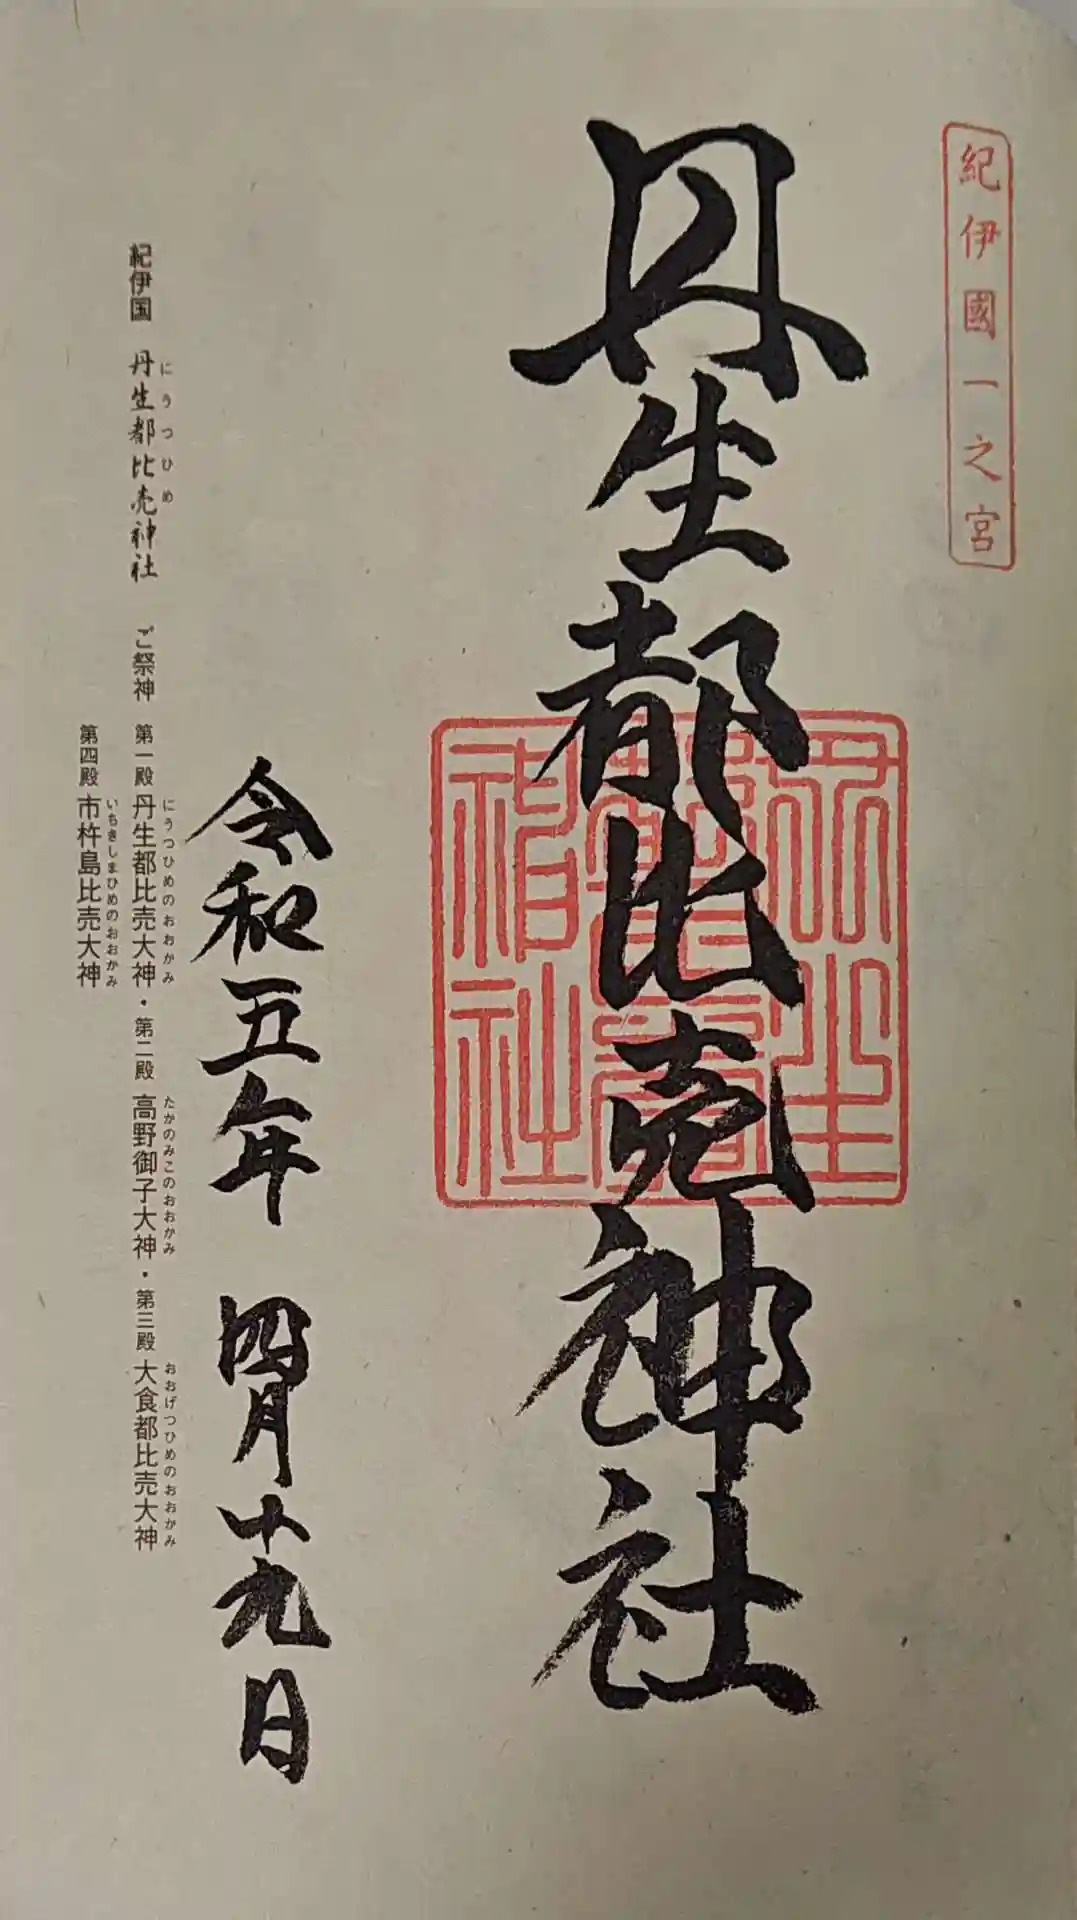 紀伊國一之宮
丹生都比売神社
丹生都比賣神社
令和五年 四月十九日
にうつひめ
紀伊国 丹生都比売神社 ご祭神
にうつひめのおおかみ たかのみこのおおかみ おおげつひめのおおかみ
第一殿 丹生都比売大神・第二殿 高野御子大神・第三殿 大食都比売大神
いちきしまひめのおおかみ
第四殿 市杵島比売大神